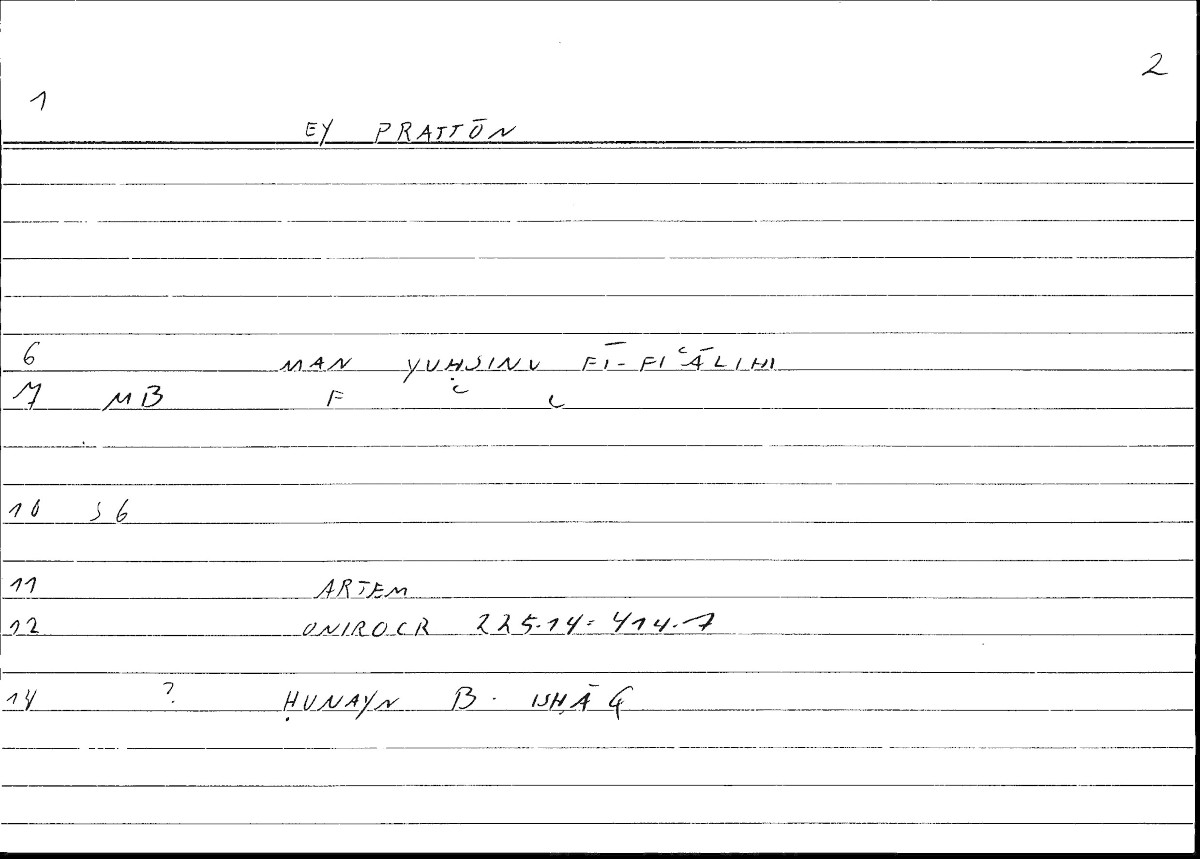 2
1
EY PRATTŌN
6 MAN YUḤSINU FĪ-FIʿĀLIHI
7 MB F ʿ
10 S6
11 ARTEM
12 ONIROCR 225.14 = 414.7
14 ? ḤUNAYN B. ISḤĀQ